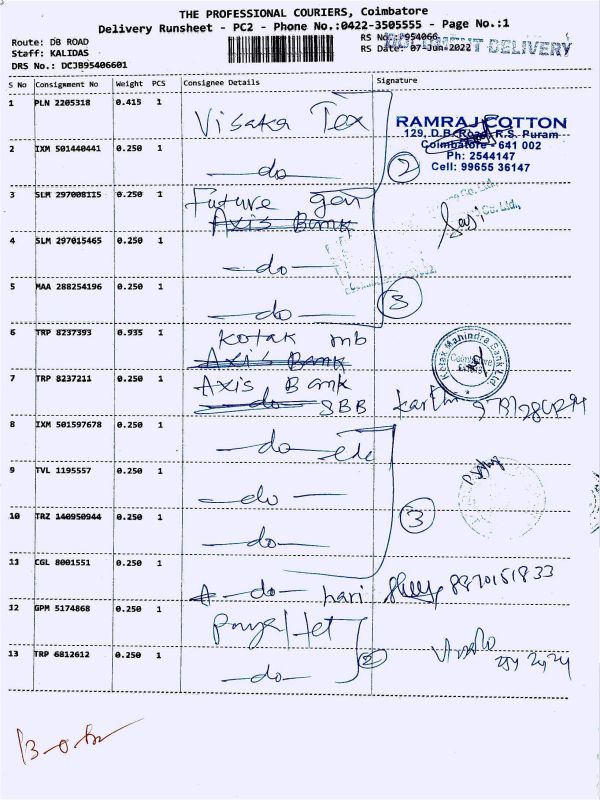 THE PROFESSIONAL COURIERS, Coimbatore
Delivery Runsheet - PC2 - Phone No.:0422-3505555 - Page No.:1
Route: DB ROAD
Staff: KALIDAS
DRS No.: DCJB95406601
RS No.: 954066
RS Date: 07-Jun-2022
DOCUMENT DELIVERY
S No Consignment No Weight PCS Consignee Details Signature
1 PLN 2205318 0.415 1 Visaka Tex
RAMRAJ COTTON
129, D.B. Road, R.S. Puram
Coimbatore - 641 002
Ph: 2544147
Cell: 99655 36147
2 IXM 501440441 0.250 1 -do- 2
3 SLM 297008115 0.250 1 Future gen
Axis Bank
4 SLM 297015465 0.250 1 -do-
Co. Ltd.
5 MAA 288254196 0.250 1 -do- 3
6 TRP 8237393 0.935 1 Kotak mb
Axis Bank
Kotak Mahindra Bank Ltd.
Coimbatore
7 TRP 8237211 0.250 1 Axis Bank
do SBB
8 IXM 501597678 0.250 1 -do-
9 TVL 1195557 0.250 1 -do-
10 TRZ 140950944 0.250 1 -do- 3
11 CGL 8001551 0.250 1 -do- hari 8870151833
12 GPM 5174868 0.250 1
13 TRP 6812612 0.250 1 -do- 2